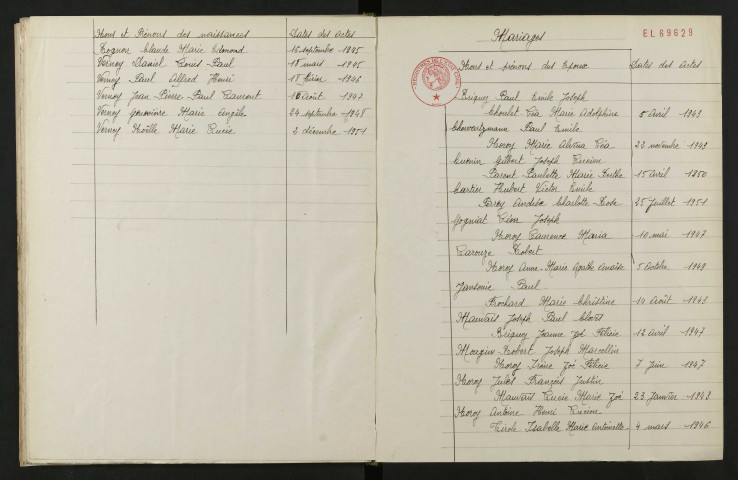 Noms et Prénoms des naissances Dates des actes
Rognon Claude Marie Edmond 16 septembre 1945
Vernoy Daniel Louis Paul 18 mars 1945
Vernoy Paul Alfred Henri 18 février 1946
Vernoy Jean-Pierre-Paul Laurent 16 août 1947
Vernoy Geneviève Marie Angèle 24 septembre 1948
Vernoy Noëlle Marie Lucie 2 décembre 1951
Mariages
EL69629
Noms et prénoms des Epoux Dates des actes
Briguey Paul Emile Joseph
Choulet Léa Marie Adolphine 5 avril 1943
Schwertzmann Paul Emile
Noroy Marie Léa 22 novembre 1943
Guenin Gilbert Joseph Lucien
Parent Paulette Marie 15 avril 1950
Cartier Hubert Victor Emile
Andrée Charlotte-Rose 25 Juillet 1951
Joseph
Noroy Laurence Maria 10 mai 1947
Larouze Robert
Noroy Anne-Marie Agathe Anaïse 5 Octobre 1949
Paul
Brochard Marie Christine 14 Août 1943
Mauvais Joseph Paul
Briguey Jeanne Zoé Félicie 12 avril 1947
Mougin Robert Joseph Marcellin
Noroy Irène Zoé Félicie 7 Juin 1947
Noroy Jules François Justin
Mauvais Lucie Marie Zoé 23 Janvier 1943
Noroy Antoine Henri Lucien
Tirole Isabelle Marie Antoinette 4 mars 1946